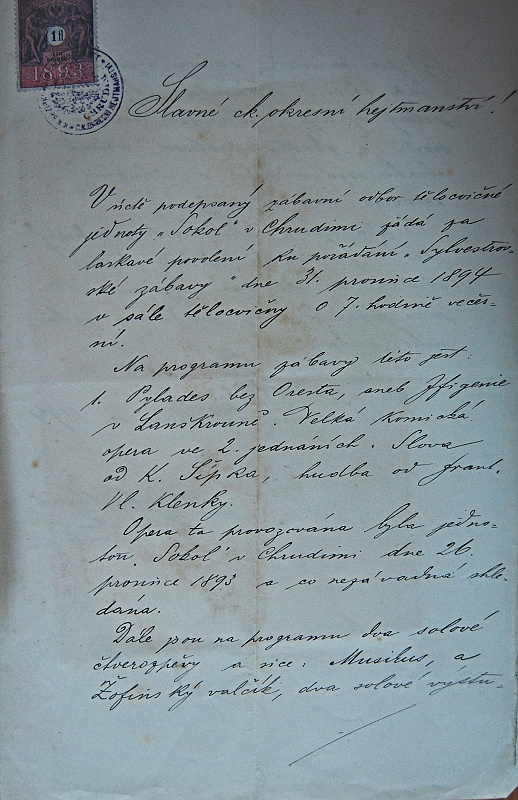 1 fl
1893
Slavné ck. okresní hejtmanství!
V úctě podepsaný zábavní odbor tělocvičné
jednoty „Sokol" v Chrudimi žádá za
laskavé povolení ku pořádání „Sylvestrov-
ské zábavy" dne 31. prosince 1894
v sále tělocvičny o 7. hodině večer-
ní.
Na programu zábavy této jest:
1. Pylades bez Oresta, aneb Ifigenie
v Lanskrouně. Velká komická
opera ve 2. jednáních. Slova
od K. Šípka, hudba od Frant.
Vl. Klenky.
Opera ta provozována byla jedno-
tou „Sokol" v Chrudimi dne 26.
prosince 1893 a co nezávadná shle-
dána.
Dále jsou na programu dva solové
čtverozpěvy a sice: Musikus, a
Žofinský valčík, dva solové výstu-